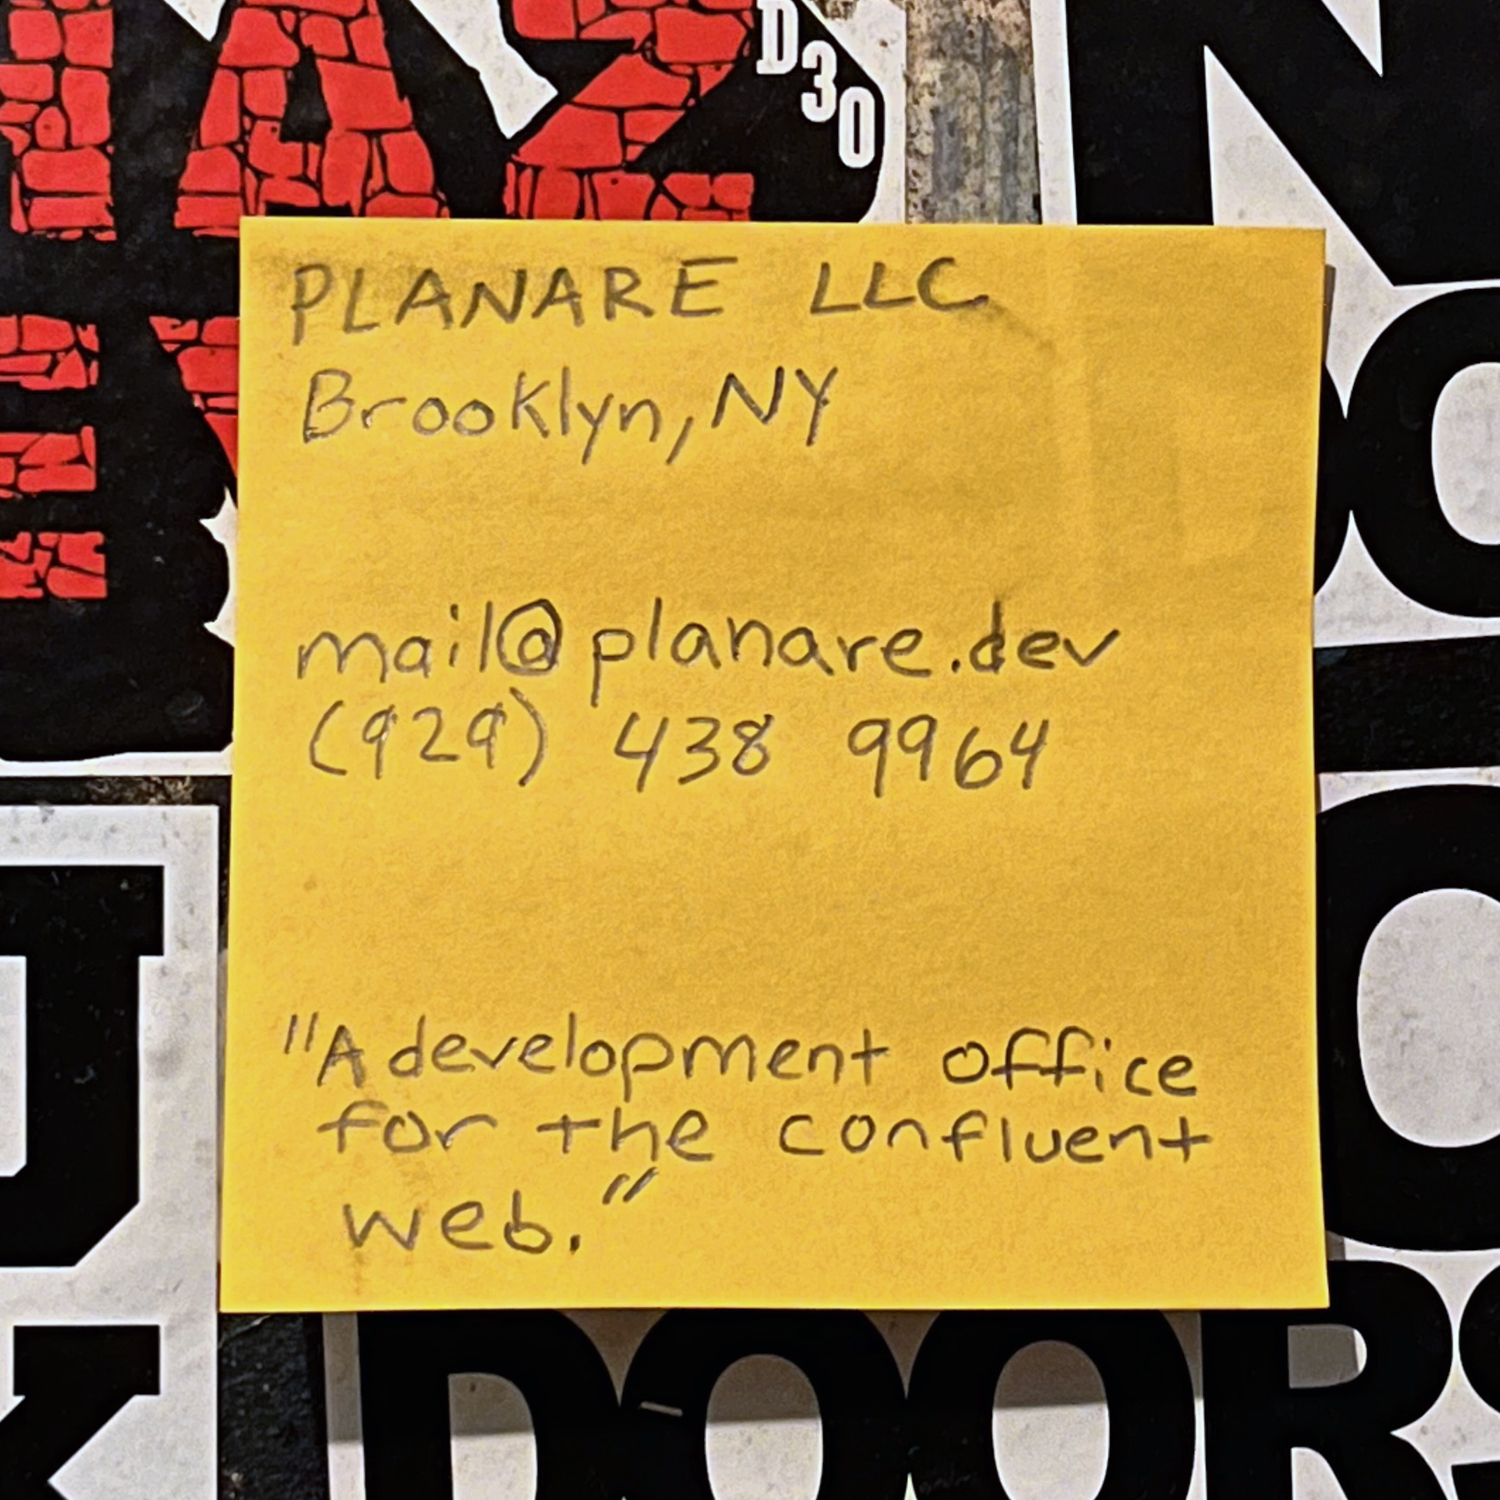 D30
PLANARE LLC
Brooklyn, NY
mail@planare.dev
(929) 438 9964
"A development office
for the confluent
web."
DOORS